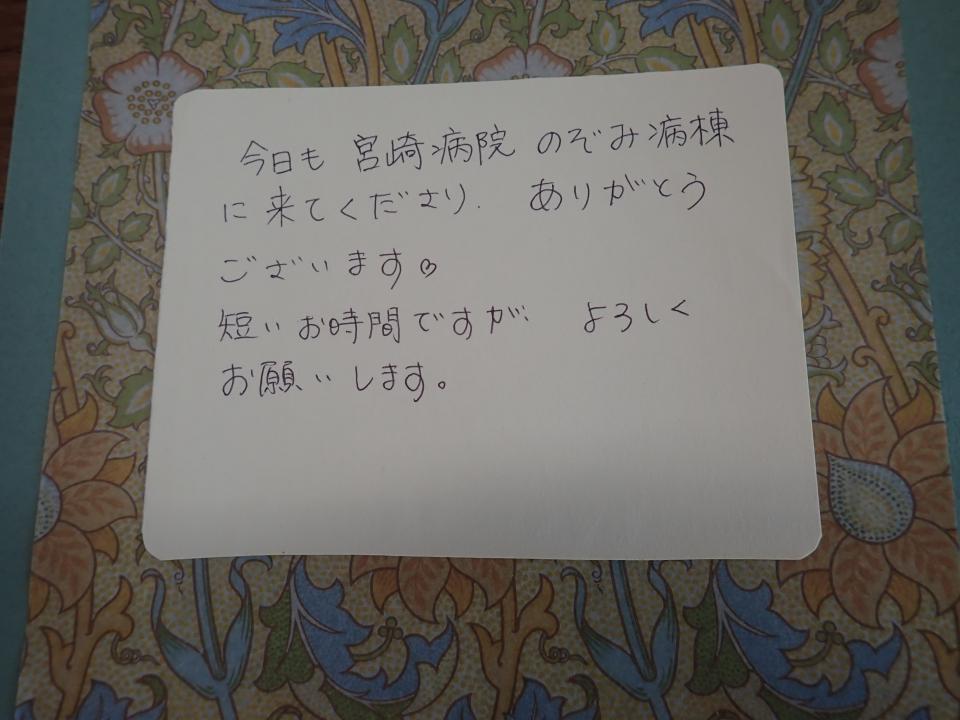 今日も 宮崎病院 のぞみ病棟
に来てくださり. ありがとう
ございます♡
短いお時間ですが、 よろしく
お願いします。